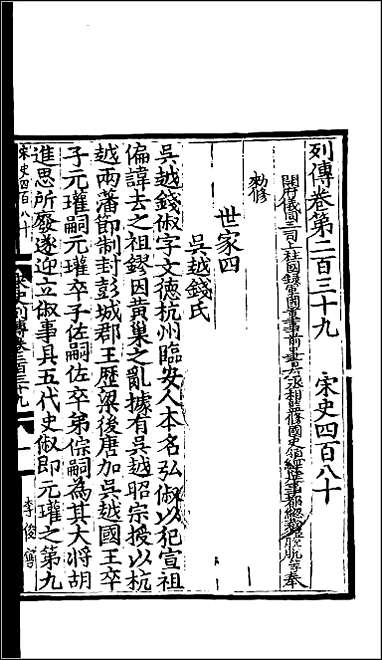 列傳卷第二百三十九　宋史四百八十
開府儀同三司上柱國錄軍國重事前中書右丞相監修國史領經筵事都總裁脫脫等奉
勑修
世家四
吳越錢氏
吳越錢俶字文德杭州臨安人本名弘俶以犯宣祖
偏諱去之祖鏐因黃巢之亂據有吳越昭宗授以杭
越兩藩節制封彭城郡王歷梁後唐加吳越國王卒
子元瓘嗣元瓘卒子佐嗣佐卒弟倧嗣為其大將胡
進思所廢遂迎立俶事具五代史俶即元瓘之第九
宋史四百八十
宋史列傳卷二百三十九
一
李俊